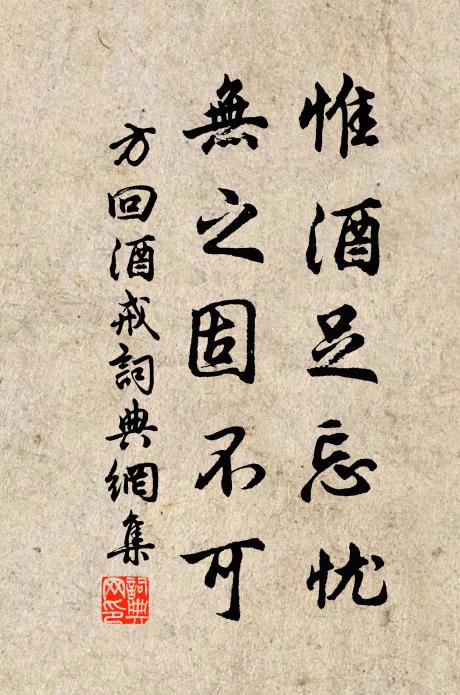 惟酒足忘忧
無之固不可
方回酒戒詞典網集
詞典网印